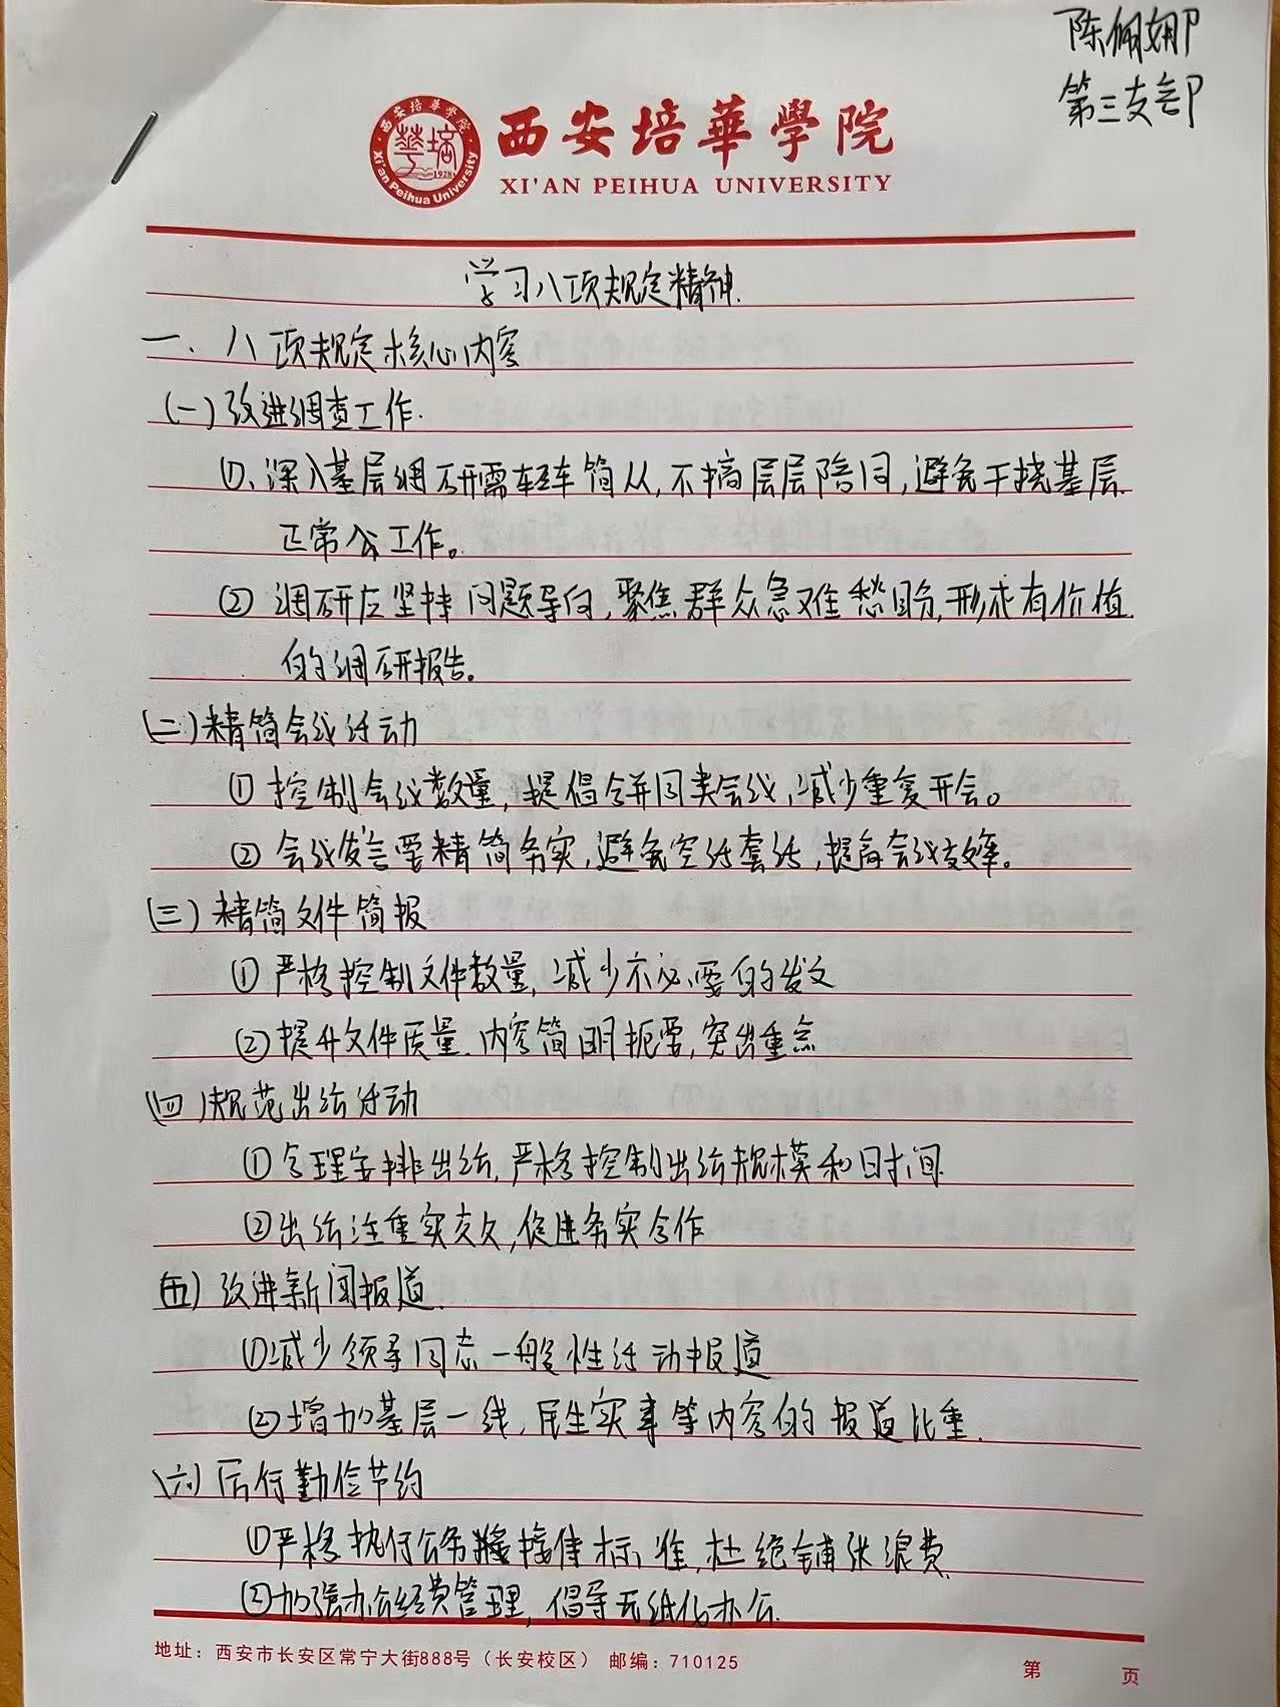 陈佩娜
第三支部
西安培華學院
XI'AN PEIHUA UNIVERSITY
西安培华学院
华培
1928
Xi'an Peihua University
学习八项规定精神.
一、八项规定核心内容
(一)改进调查工作.
①、深入基层调研需轻车简从,不搞层层陪同,避免干扰基层
正常工作。
②调研应坚持问题导向,聚焦群众急难愁盼,形成有价值
的调研报告。
(二)精简会议活动
①控制会议数量,提倡合并同类会议,减少重复开会。
②会议发言要精简务实,避免空话套话,提高会议效率。
(三)精简文件简报
①严格控制文件数量,减少不必要的发文
②提升文件质量.内容简明扼要,突出重点
(四)规范出访活动
①合理安排出访,严格控制出访规模和时间
②出访注重实效,促进务实合作
(五)改进新闻报道.
①减少领导同志一般性活动报道
②增加基层一线,民生实事等内容的报道比重.
(六)厉行勤俭节约
①严格执行公务接待标准,杜绝铺张浪费.
②加强办公经费管理,倡导无纸化办公.
地址：西安市长安区常宁大街888号（长安校区） 邮编：710125
第 页